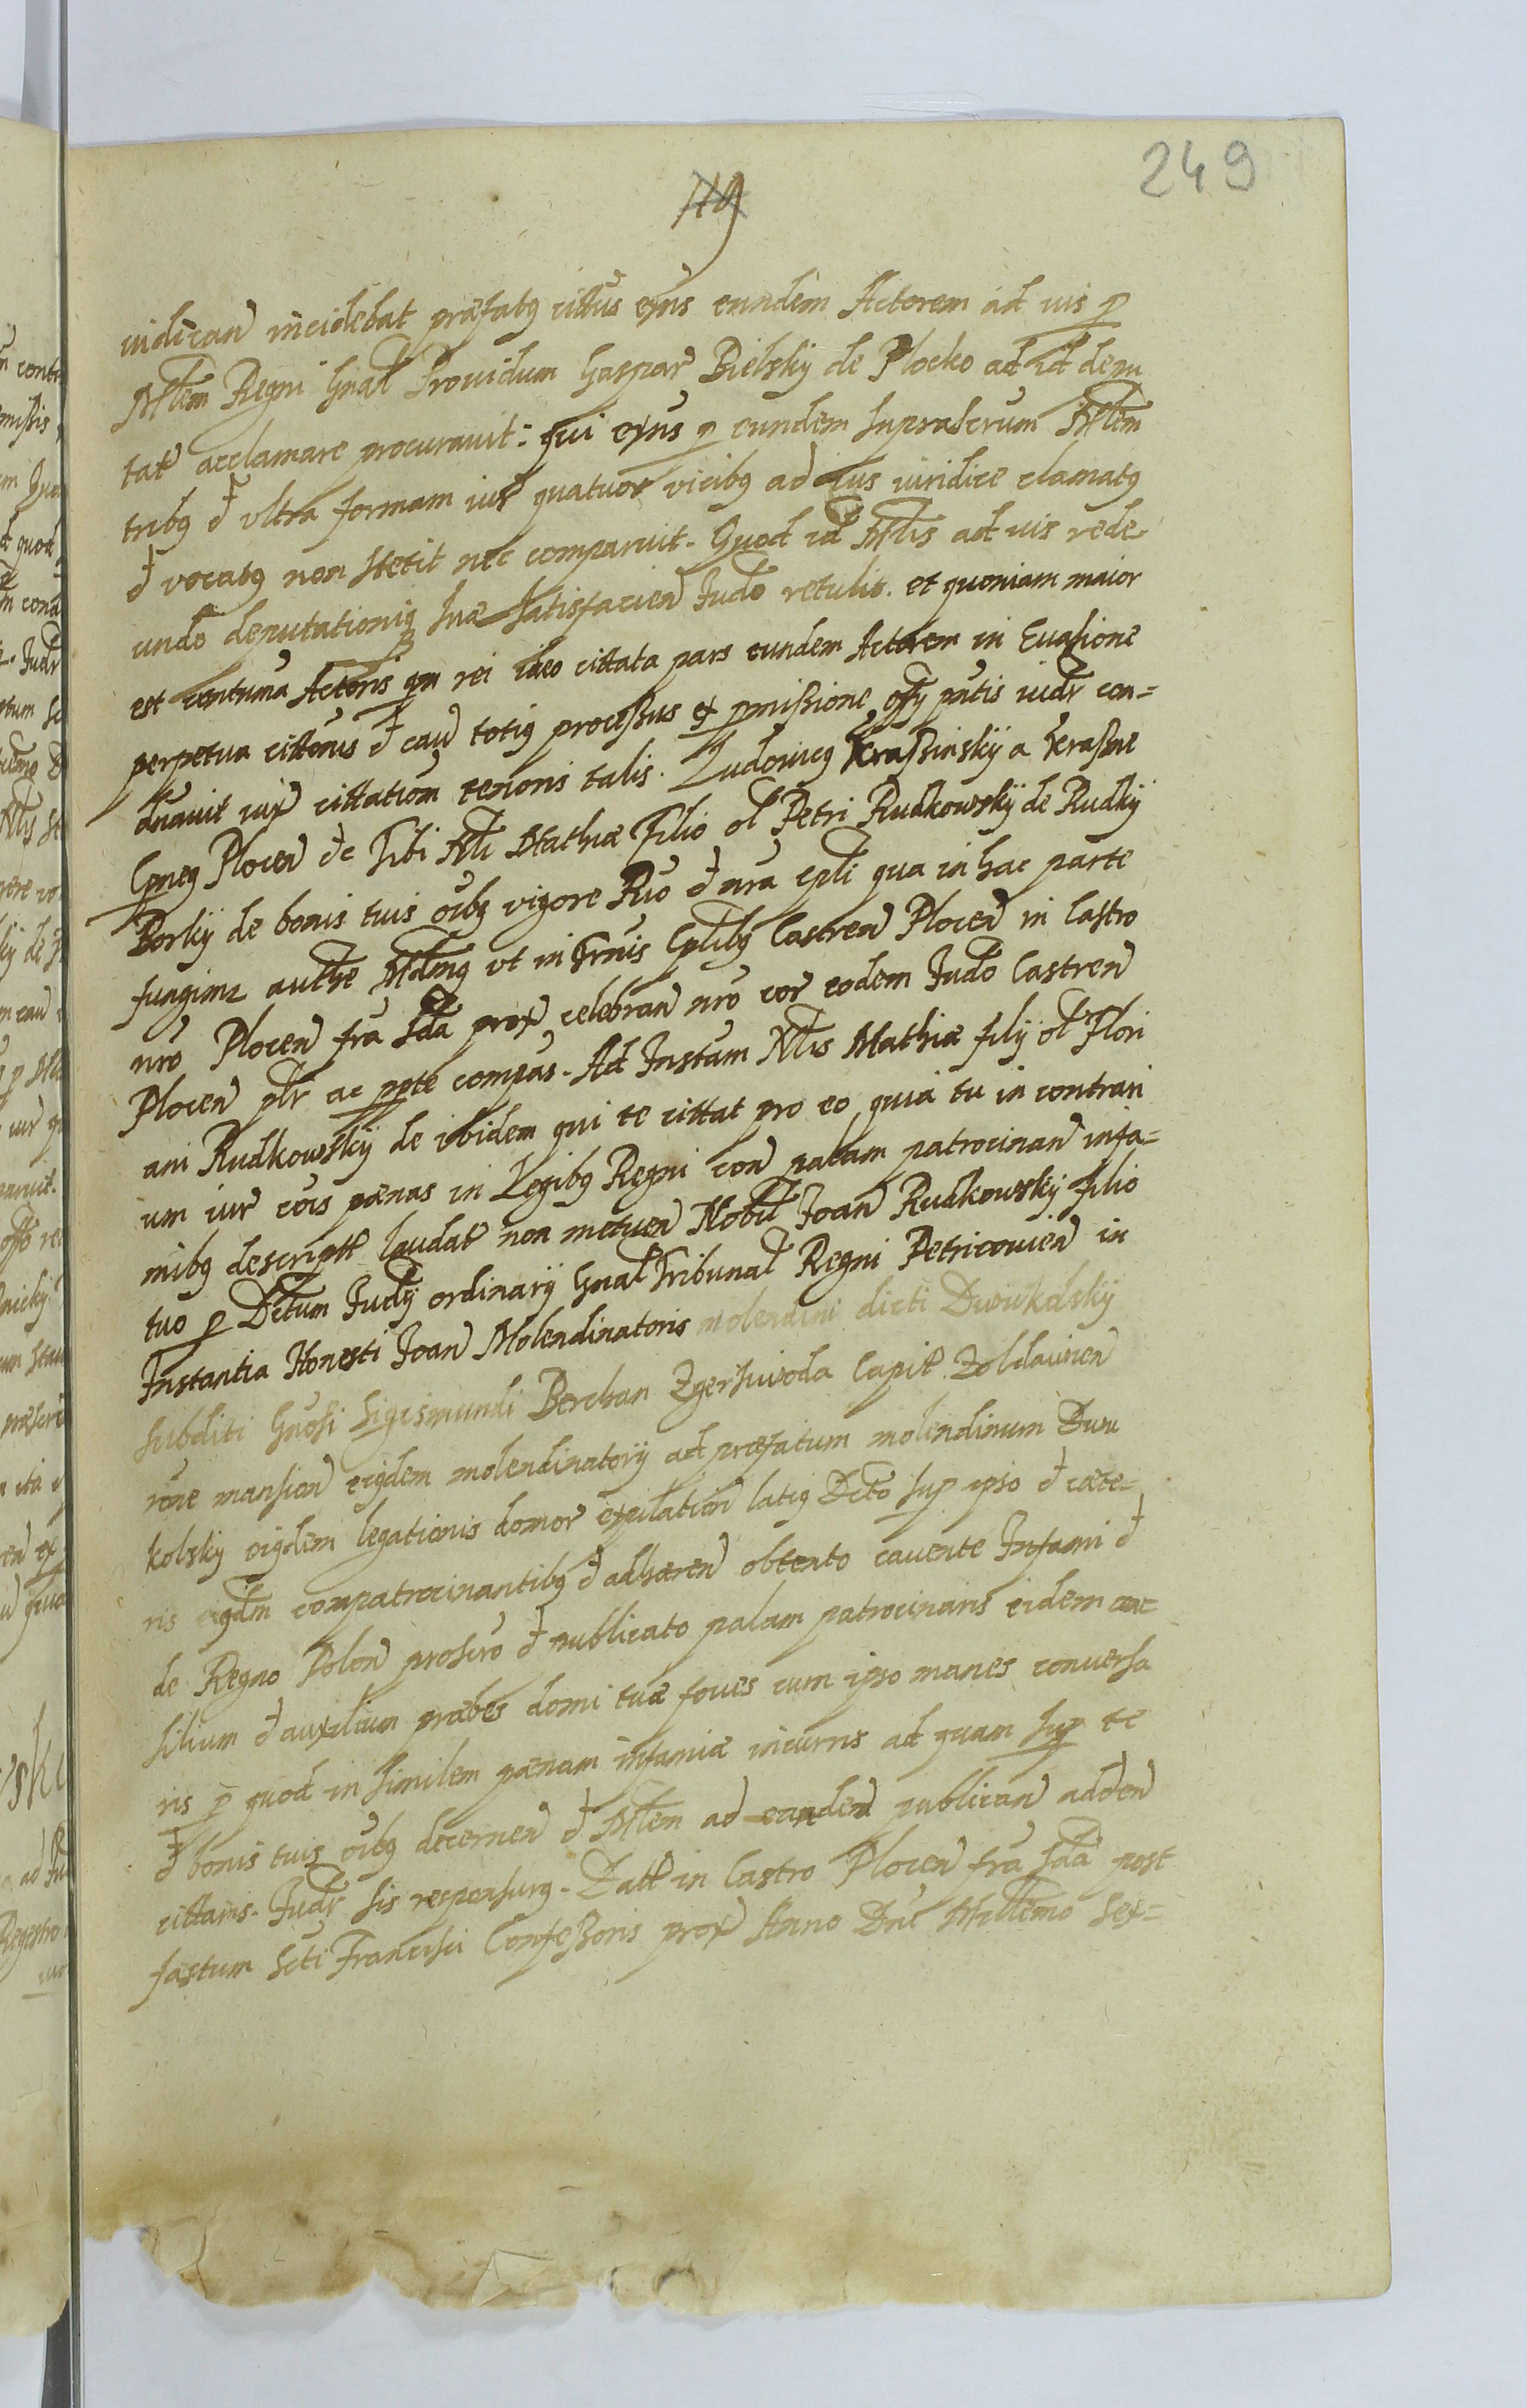 249
119
iudican incidebat præfatq cittus exns eundem Actorem ad ius p
Mlem Regni Gnal Providum Gaspar Bielsky de Plocko ad id depu
tat acclamare procuravit: qui exns p eundem suprascrum Mlem
tribq et ultra formam iur quatuor vicibq ad ius iuridice clamatq
et vocatq non stetit nec comparuit. Quod id Mlis ad ius rede-
undo deputationiq suæ satisfacien Judo retulit. et quoniam maior
est contuma Actoris qm rei ideo cittata pars eundem Actorem in Evasione
perpetua cittonis et cau totiq processus ex pmissione offy pntis iudr con=
dnavit iux cittatiom tenoris talis. Ludovicq Krassinskÿ a Krasne
Cpneq Plocen etc Tibi Nli Mathiæ Filio ol Petri Rudkowskÿ de Rudkÿ
Borkÿ de bonis tuis oibq vigore Ruo et nra cpli qua in hac parte
fungimr authe Mdmq ut in Trnis Cplibq Castren Plocen in Castro
nro Plocen fra sda prox celebran nro cor eodem Judo Castren
Plocen plr ac ppte compas. Ad Instam Nlis Mathiæ filÿ ol Flori
ani Rudkowskÿ de ibidem qui te cittat pro eo quia tu in contrari
um iur cois pænas in Legibq Regni con palam patrocinan infa=
mibq descriptt laudat non metuen Nobil Joan Rudkowskÿ filio
tuo p Dctum Judÿ ordinarÿ Gnal Tribunal Regni Petricovien in
Instantia Honesti Joan Molendinatoris molendini dicti Dwukolskÿ
subditi Gnosi Sigismundi Berchan Zgersuvoda Capit. Zoldawien
rone mansion eiqdem molendinatorÿ ad præfatum molendinum Dwu
kolsky eiqdem legationis domor expilation latiq Dcto sup ipso et cæte-
ris eiqdm compatrocinantibq et adhæren obtento cavente Infami et
de Regno Polon proscro et publicato palam patrocinaris eidem con
silium et auxilium præbes domi tuæ foves cum ipso manes conversa
ris p quod in similem pænam infamiæ incurris ad quam sup te
et bonis tuis oibq decernen et Mlem ad eanden publican adden
cittaris. Judr sis responsurq. Datt in Castro Plocen fra sda post
fastum Scti Francisci Confessoris prox Anno Dni Millemo Sex=